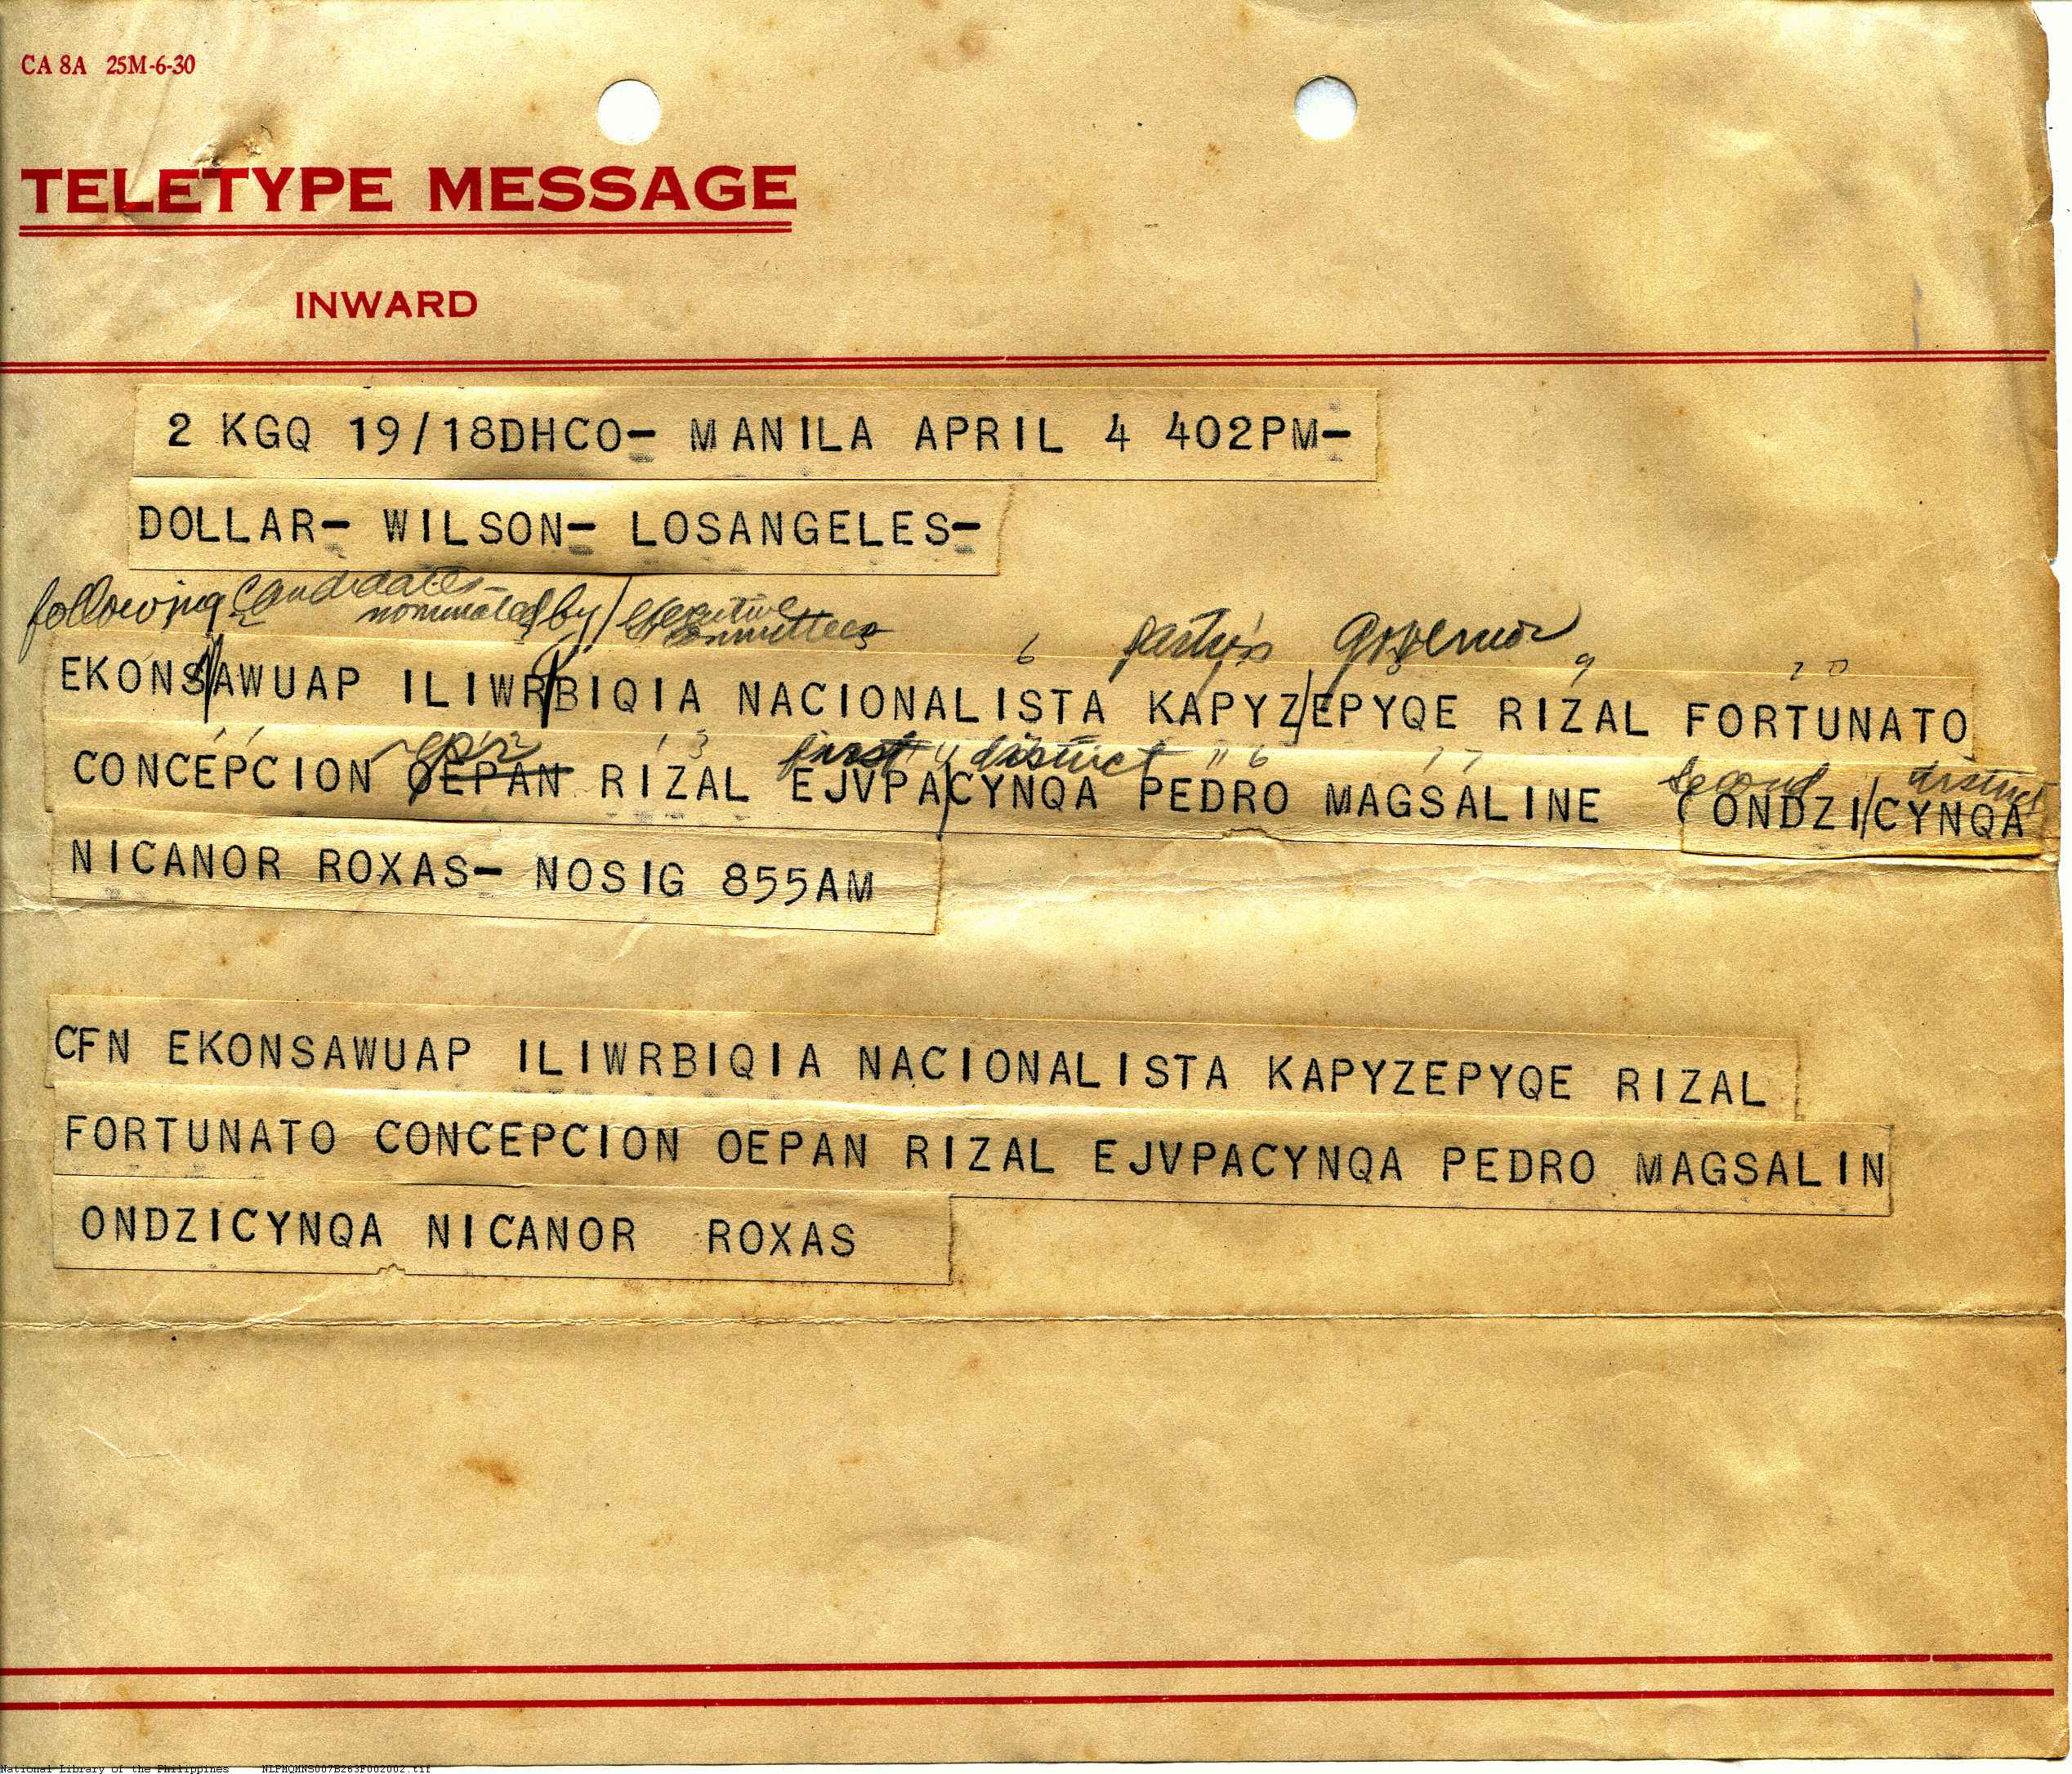 CA 8A 25M-6-30
TELETYPE MESSAGE
INWARD
2 KGQ 19/18DHCO- MANILA APRIL 4 402PM-
DOLLAR- WILSON- LOSANGELES-
following candidates nominated by executive committees 6 Governor 9
EKONS/AWUAP ILIWR/BIQIA NACIONALISTA KAPYZ/EPYQE RIZAL FORTUNATO
13 first district 16 17 second district
CONCEPCION OEPAN RIZAL EJVPA/CYNQA PEDRO MAGSALINE (ONDZI/CYNQA
NICANOR ROXAS- NOSIG 855AM
CFN EKONSAWUAP ILIWRBIQIA NACIONALISTA KAPYZEPYQE RIZAL
FORTUNATO CONCEPCION OEPAN RIZAL EJVPACYNQA PEDRO MAGSALIN
ONDZICYNQA NICANOR ROXAS
National Library of the Philippines NLPMQMNS007B263F002002.tif